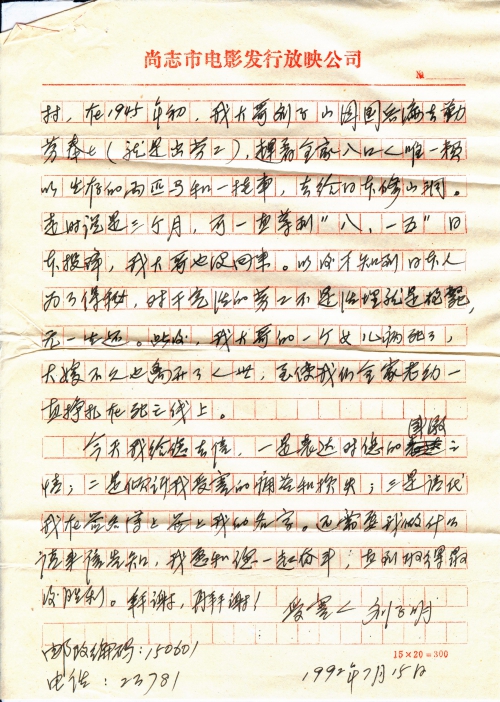 尚志市电影发行放映公司
№
村，在1945年初，我大哥刘子山因国去勤
劳奉士（就是出劳工），赶着全家八口人唯一赖
以生存的两匹马和一挂车，去给日本修山洞。
走时说是三个月，可一直等到“八、一五”日
本投降，我大哥也没回来。以后才知到日本人
为了保秘，对干完活的劳工不是活埋就是枪毙，
无一生还。此后，我大哥的一个女儿病死了，
大嫂不久也离开了人世，至使我们全家老幼一
直挣扎在死亡线上。
今天我给您去信，一是表达对您的
感激
之
情；二是倾诉我受害的痛苦和损失；三是请代
我在签名信上签上我的名字。还需要我做什么
请来信告知，我愿和您一起奋斗；直到取得最
后胜利。拜谢，再拜谢！
受害人 刘子明
邮政编码：150601
电话：23781
15×20=300
1992年7月15日